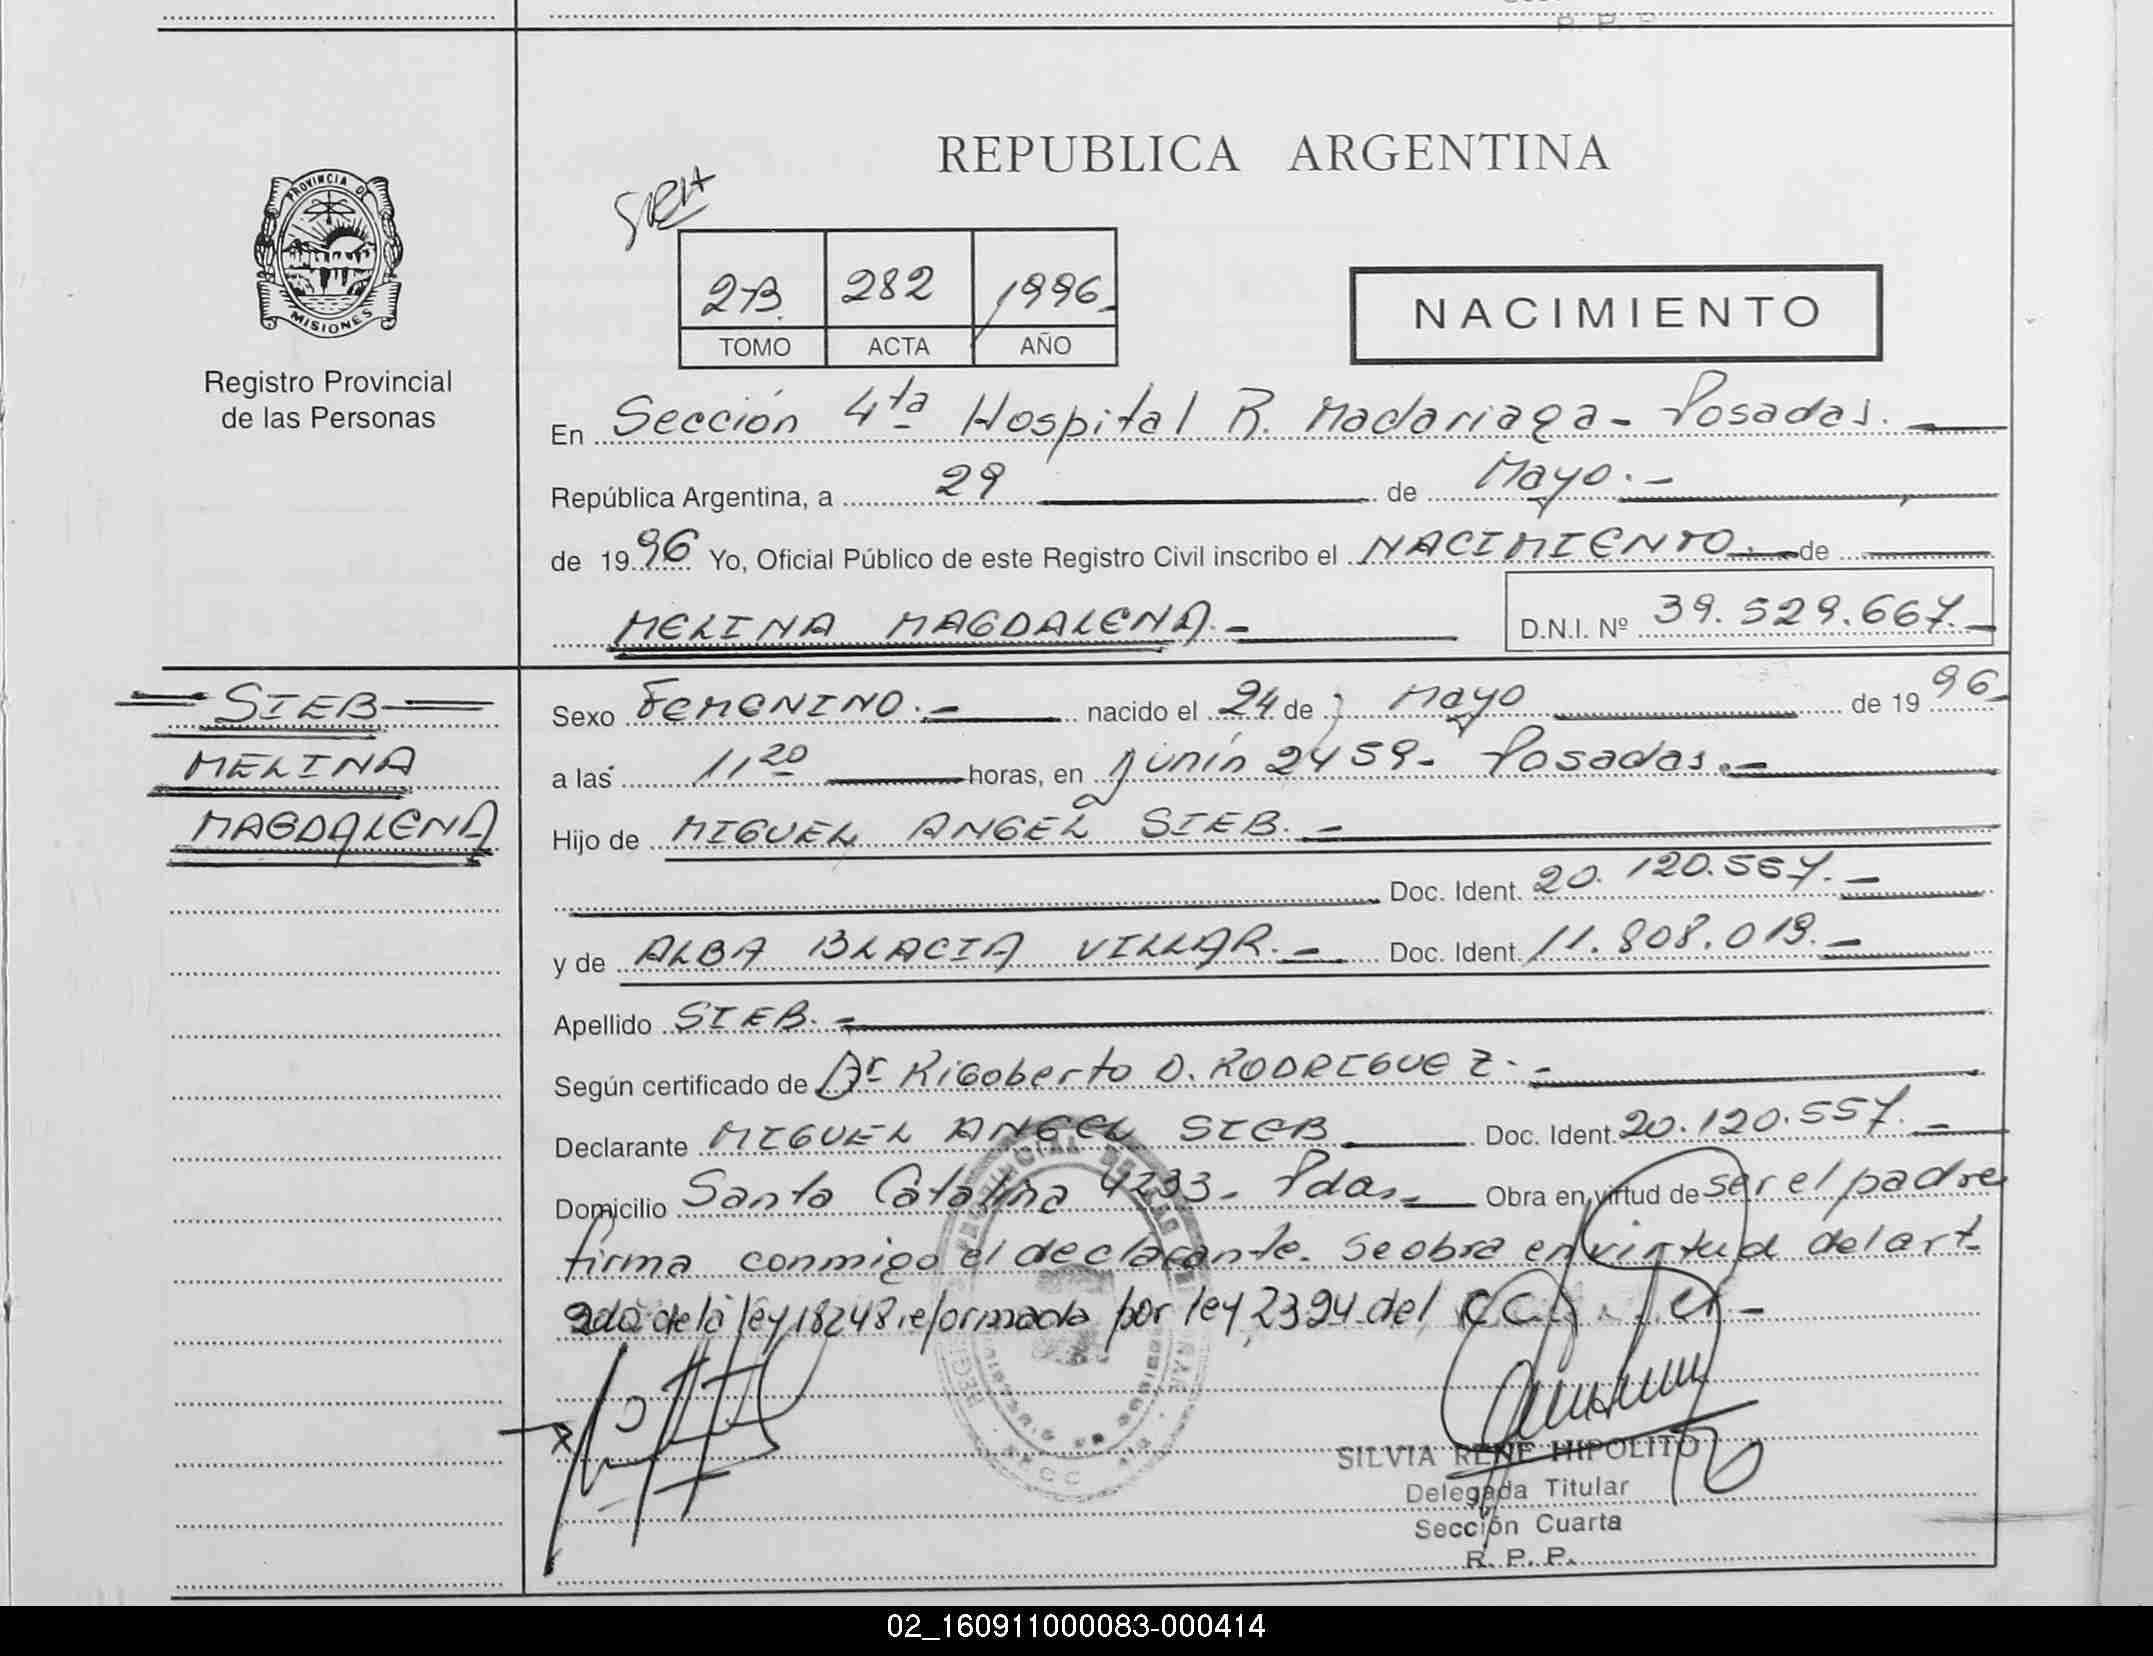 R. P. P.
REPUBLICA ARGENTINA
PROVINCIA DE
MISIONES
Registro Provincial
de las Personas
2-B. 282 1996.-
TOMO ACTA AÑO
NACIMIENTO
En Sección 4ta Hospital R. Madariaga - Posadas.
República Argentina, a 29 de Mayo.-
de 1996 Yo, Oficial Público de este Registro Civil inscribo el NACIMIENTO.- de
MELINA MAGDALENA.-
D.N.I. Nº 39.529.667.-
SIEB
MELINA
MAGDALENA
Sexo FEMENINO.- nacido el 24 de Mayo de 1996-
a las 11,20 horas, en Junín 2459- Posadas.-
Hijo de MIGUEL ANGEL SIEB.-
Doc. Ident. 20.120.557.-
y de ALBA BLACIA VILLAR.- Doc. Ident. 11.808.019.-
Apellido SIEB.-
Según certificado de Dr Rigoberto D. RODRIGUEZ.-
Declarante MIGUEL ANGEL SIEB Doc. Ident. 20.120.557.-
Domicilio Santa Catalina 4233- Pdas.- Obra en virtud de ser el padre
firma conmigo el declarante. Se obra en virtud del art
2do de la ley 18248 reformada por ley 2394 del
SILVIA RENE HIPOLITO
Delegada Titular
Sección Cuarta
R. P. P.
02_160911000083-000414